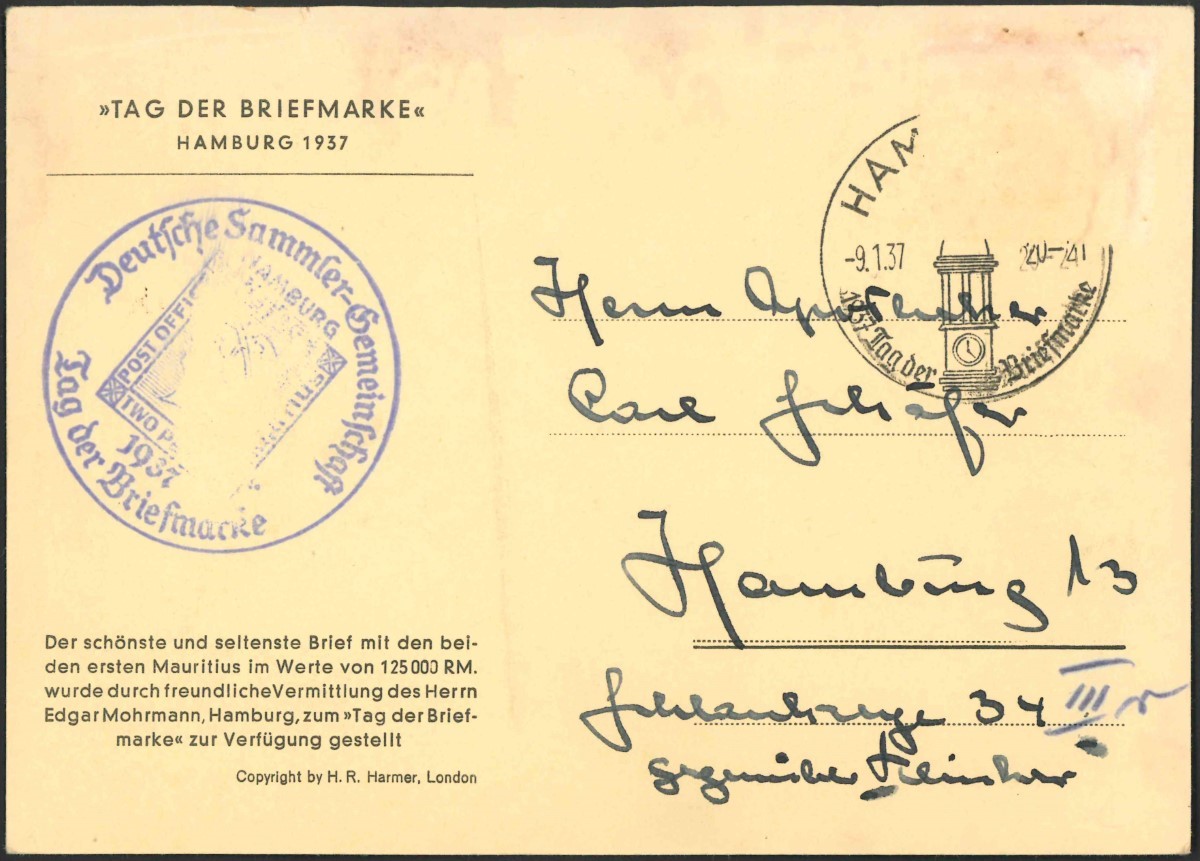 »TAG DER BRIEFMARKE«
HAMBURG 1937
Deutsche Sammler-Gemeinschaft
Tag der Briefmarke
1937
POST OFFI
TWO P
HAMBURG
HAM
-9.1.37
20-24
1937 Tag der Briefmarke
Herrn Apotheker
Carl Schäfer
Hamburg 13
34 III r
gegenüber
Der schönste und seltenste Brief mit den bei-
den ersten Mauritius im Werte von 125000 RM.
wurde durch freundliche Vermittlung des Herrn
Edgar Mohrmann, Hamburg, zum »Tag der Brief-
marke« zur Verfügung gestellt
Copyright by H. R. Harmer, London